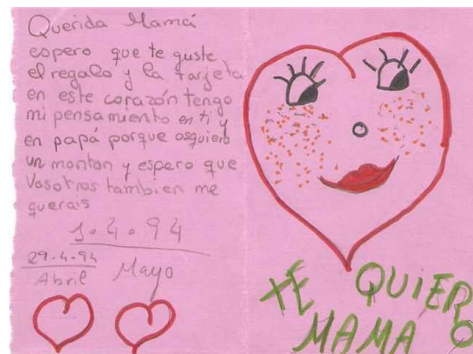 Querida Mamá
espero que te guste
el regalo y la tarjeta
en este corazón tengo
mi pensamiento en ti y
en papá porque osquiero
un monton y espero que
Vosotros tambien me
querais
1.4.94
29.4.94
Abril Mayo
TE QUIERO
MAMA